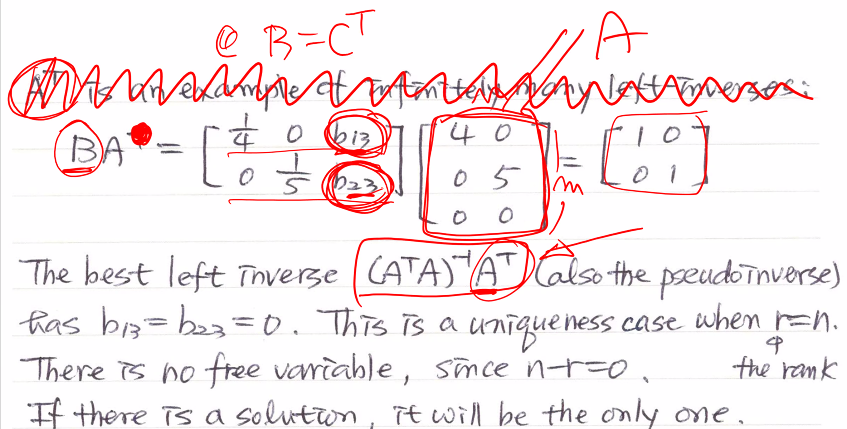 @ B = Cᵀ A
Aᵀ is an example of infinitely many left inverses:
BA = [1/4 0 b₁₃; 0 1/5 b₂₃] [4 0; 0 5; 0 0] m = [1 0; 0 1]
The best left inverse (AᵀA)⁻¹Aᵀ (also the pseudoinverse)
has b₁₃ = b₂₃ = 0. This is a uniqueness case when r=n.
There is no free variable, since n-r=0. the rank
If there is a solution, it will be the only one.